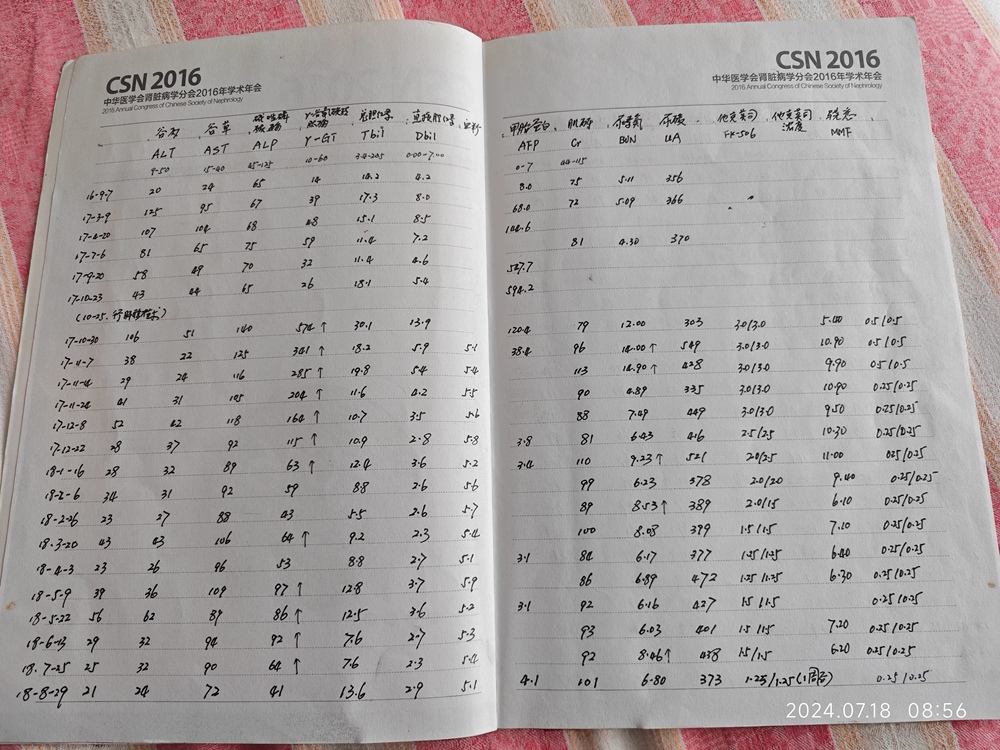 CSN 2016
中华医学会肾脏病学分会2016年学术年会
2016 Annual Congress of Chinese Society of Nephrology
谷丙 谷草 γ-谷氨酰 总胆红 直接胆红
ALT AST ALP γ-GT Tbil Dbil
9-50 15-40 45-125 10-60 3.4-20.5 0.00-7.00
16-9-7 20 24 65 14 14.2 4.2
17-3-9 125 95 67 39 17.3 8.0
17-4-20 107 104 68 48 15.1 8.5
17-7-6 81 65 75 59 11.4 7.2
17-9-20 58 49 70 32 11.4 4.6
17-10-23 43 44 65 26 18.1 5.4
(10-25. 行肝移植术)
17-10-30 106 51 140 574↑ 30.1 13.9
17-11-7 38 22 125 341↑ 18.2 5.9 5.1
17-11-14 29 24 116 285↑ 19.8 5.4 5.4
17-11-24 41 31 105 204↑ 11.6 4.2 5.5
17-12-8 52 42 118 164↑ 10.7 3.5 5.6
17-12-22 28 37 92 115↑ 10.9 2.8 5.8
18-1-16 28 32 89 63↑ 12.4 3.6 5.2
18-2-6 34 31 92 59 8.8 2.6 5.6
18-2-26 23 27 88 43 5.5 2.6 5.7
18-3-20 43 43 106 64↑ 9.2 2.3 5.4
18-4-3 23 26 96 53 8.8 2.7 5.1
18-5-9 39 36 109 97↑ 12.8 3.7 5.9
18-5-22 56 62 89 86↑ 12.5 3.6 5.2
18-6-13 29 32 94 92↑ 7.6 2.7 5.3
18.7-25 25 32 90 64↑ 7.6 2.3 5.4
18-8-29 21 24 72 41 13.6 2.9 5.1
CSN 2016
中华医学会肾脏病学分会2016年学术年会
2016 Annual Congress of Chinese Society of Nephrology
甲胎蛋白 肌酐 尿素氮 尿酸 他克莫司 他克莫司浓度
AFP Cr BUN UA FK-506 MMF
0-7 44-115
8.0 75 5.11 356
68.0 72 5.09 366
104.6
81 4.30 370
527.7
594.2
120.4 79 12.00 303 3.0/3.0 5.40 0.5/0.5
38.4 96 14.00↑ 549 3.0/3.0 10.90 0.5/0.5
113 14.90↑ 428 3.0/3.0 9.90 0.5/0.5
90 4.89 335 3.0/3.0 10.90 0.25/0.25
88 7.49 449 3.0/3.0 9.50 0.25/0.25
3.8 81 6.43 416 2.5/2.5 10.30 0.25/0.25
3.4 110 9.23↑ 521 2.0/2.5 11.00 0.25/0.25
99 6.23 378 2.0/2.0 9.40 0.25/0.25
89 8.53↑ 389 2.0/1.5 6.10 0.25/0.25
100 8.08 379 1.5/1.5 7.10 0.25/0.25
3.1 84 6.17 377 1.25/1.25 6.40 0.25/0.25
86 6.89 472 1.25/1.25 6.30 0.25/0.25
3.1 92 6.16 427 1.5/1.5 0.25/0.25
93 6.03 401 1.5/1.5 7.20 0.25/0.25
92 8.46↑ 438 1.5/1.5 6.20 0.25/0.25
4.1 101 6.80 373 1.25/1.25 0.25/0.25
2024.07.18 08:56